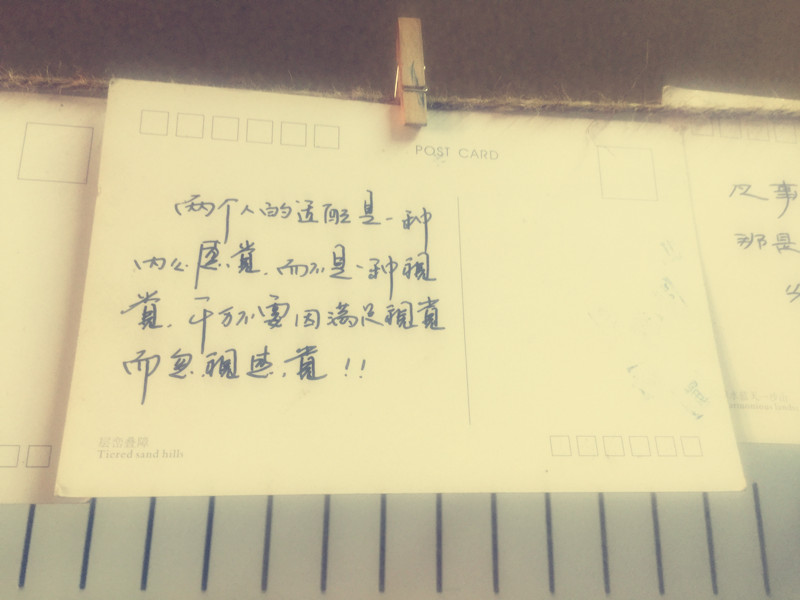 POST CARD
两个人的适配是一种
内心感觉，而不是一种视
觉，千万不要因满足视觉
而忽视感觉！！
Tiered sand hills
凡事
那是